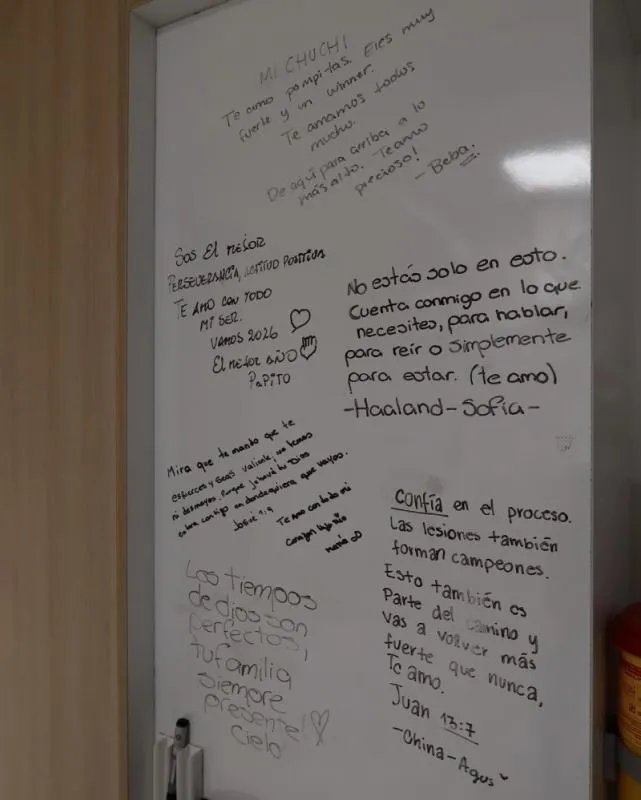 MI CHUCHI
Te amo pompitas. Eres muy
fuerte y un winner.
Te amamos todos
mucho.
De aquí para arriba a lo
más alto. Te amo
precioso!
- Beba.
Sos El mejor
PERSEVERANCIA, ACTITUD POSITIVA
TE AMO CON TODO
MI SER.
VAMOS 2026
El mejor año
PAPITO
No estás solo en esto.
Cuenta conmigo en lo que
necesites, para hablar,
para reír o simplemente
para estar. (te amo)
-Haaland-Sofía-
Mira que te mando que te
esfuerces y seas valiente, no temas
ni desmayes. Porque Jehová tu Dios
estará contigo en dondequiera que vayas.
Josué 1,9
Te amo con todo mi
Corazón hijo mío
mamá
Los tiempos
de dios son
perfectos,
tu familia
siempre
presente!
Cielo
Confía en el proceso.
Las lesiones también
forman campeones.
Esto también es
Parte del camino y
vas a volver más
fuerte que nunca,
Te amo.
Juan 13:7
-China-Agus